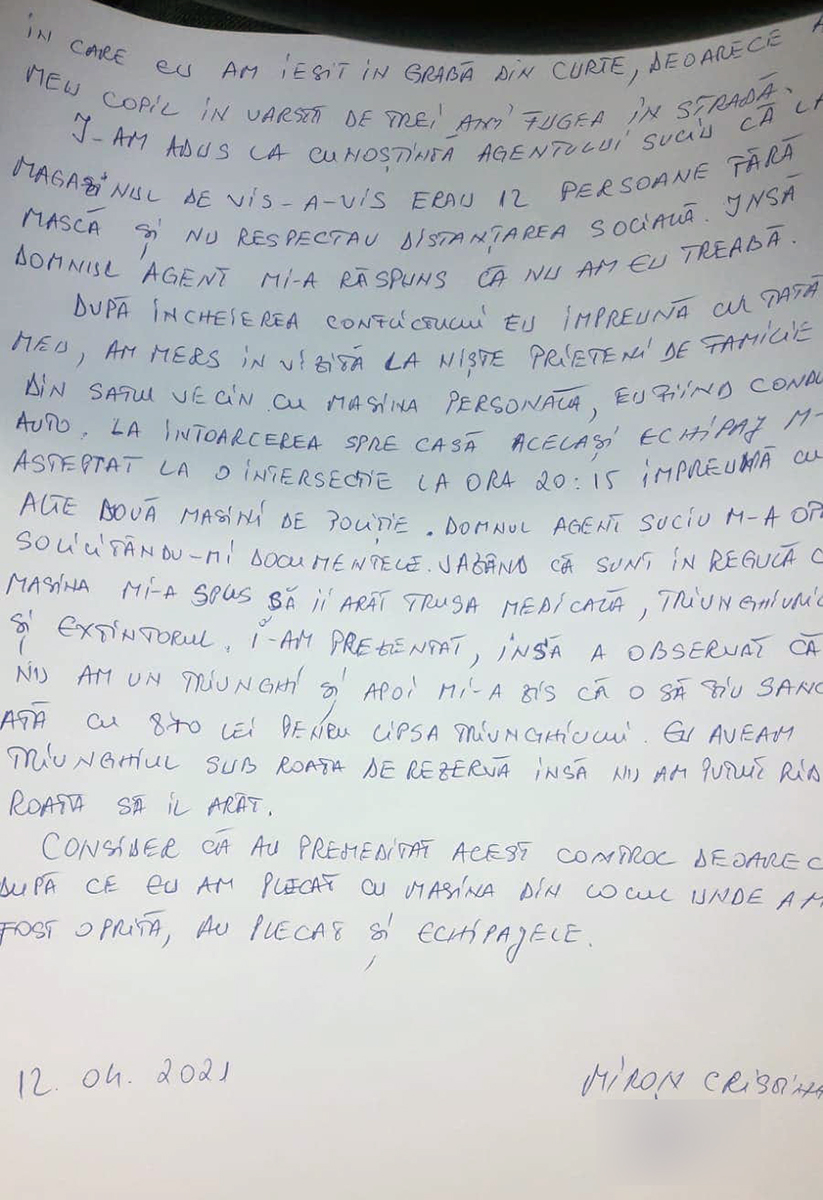 ÎN CARE EU AM IEȘIT ÎN GRABĂ DIN CURTE, DEOARECE A
MEU COPIL ÎN VARSTĂ DE TREI ANI FUGEA ÎN STRADĂ.
I-AM ADUS LA CUNOȘTINTA AGENTULUI SUCIU CĂ LA
MAGAZINUL DE VIS-A-VIS ERAU 12 PERSOANE FĂRĂ
MASCĂ ȘI NU RESPECTAU DISTANȚAREA SOCIALĂ. INSĂ
DOMNUL AGENT MI-A RĂSPUNS CĂ NU AM EU TREABĂ.
DUPĂ ÎNCHEIEREA CONFLICTULUI EU ÎMPREUNĂ CU TATĂ
MEU, AM MERS IN VIZITĂ LA NIȘTE PRIETENI DE FAMILIE
DIN SATUL VECIN CU MAȘINA PERSONALĂ, EU FIIND CONDU
AUTO. LA ÎNTOARCEREA SPRE CASĂ ACELAȘI ECHIPAJ M-
AȘTEPTAT LA O INTERSECTIE LA ORA 20:15 ÎMPREUNĂ CU
ALTE DOUĂ MAȘINI DE POLIȚIE. DOMNUL AGENT SUCIU M-A OP
SOLICITÂNDU-MI DOCUMENTELE. VĂZÂND CĂ SUNT ÎN REGULĂ C
MAȘINA MI-A SPUS SĂ II ARĂT TRUSA MEDICALĂ, TRIUNGHIURIL
ȘI EXTINTORUL. I-AM PREZENTAT, ÎNSĂ A OBSERVAT CĂ
NU AM UN TRIUNGHI ȘI APOI MI-A ZIS CĂ O SĂ FIU SANC
ATĂ CU 870 LEI PENRU LIPSA TRIUNGHIULUI. EU AVEAM
TRIUNGHIUL SUB ROATA DE REZERVĂ ÎNSĂ NU AM PUTUT RID
ROATA SĂ IL ARĂT.
CONSIDER CĂ AU PREMEDITAT ACEST CONTROL DEOAREC
DUPĂ CE EU AM PLECAT CU MAȘINA DIN LOCUL UNDE AM
FOST OPRITĂ, AU PLECAT ȘI ECHIPAJELE.
12.04.2021
MIRON CRISTINA